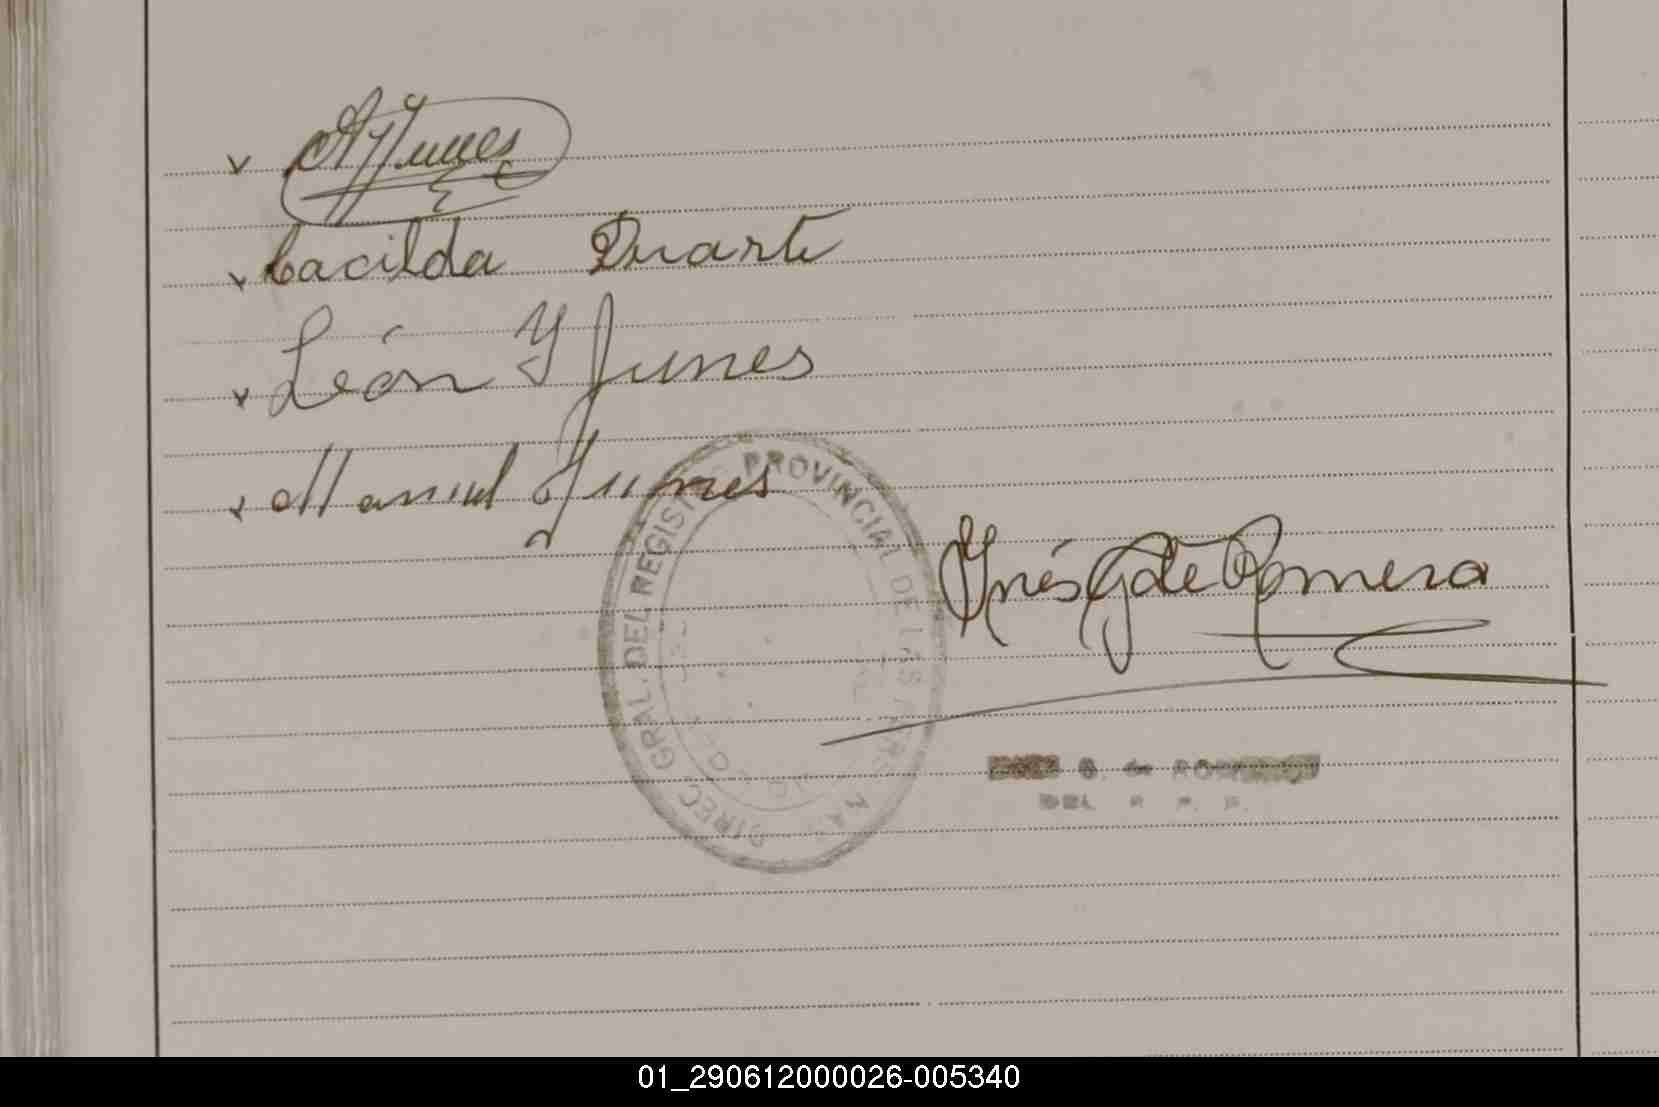 AYunes
Cacilda Duarte
León Yunes
Manuel Yunes
DIREC. GRAL. DEL REGISTRO PROVINCIAL DE LAS PERSONAS
Inés G de Romero
G. de
DEL R. P. P.
01_290612000026-005340